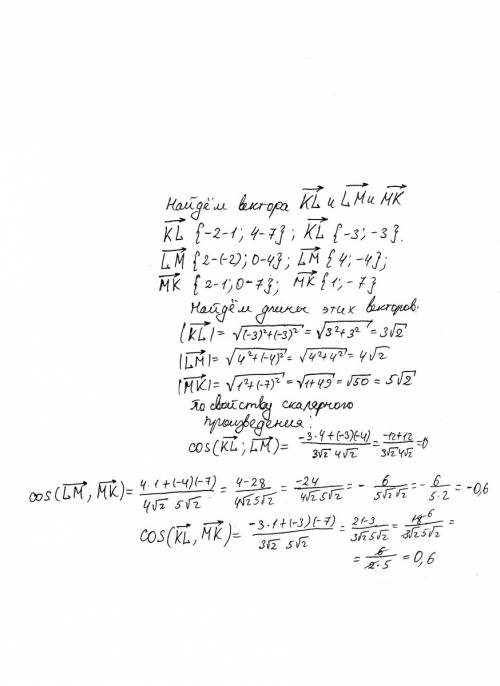 Найдём вектора KL и LM и MK
KL {-2-1; 4-7}; KL {-3; -3}.
LM {2-(-2); 0-4}; LM {4; -4};
MK {2-1; 0-7}; MK {1; -7}
Найдём длины этих векторов.
|KL| = √((-3)²+(-3)²) = √(3²+3²) = 3√2
|LM| = √(4²+(-4)²) = √(4²+4²) = 4√2
|MK| = √(1²+(-7)²) = √(1+49) = √50 = 5√2
По свойству скалярного
произведения:
cos(KL; LM) = (-3·4+(-3)(-4))/(3√2 4√2) = (-12+12)/(3√2 4√2) = 0
cos(LM, MK) = (4·1+(-4)(-7))/(4√2 5√2) = (4-28)/(4√2 5√2) = -24/(4√2 5√2) = - 6/(5√2 √2) = - 6/(5·2) = -0,6
cos(KL, MK) = (-3·1+(-3)(-7))/(3√2 5√2) = (21-3)/(3√2 5√2) = 18 6/(3√2 5√2) =
= 6/(2·5) = 0,6